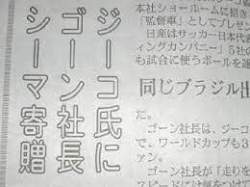 ジーコ氏に
ゴーン社長
シーマ寄贈
本社ショールームに招
「監督車」としてプレ
日産はサッカー日本代表
ィングカンパニー」5社の
も試合に使うボールを運
同じブラジル出
た。
ゴーン社長は、ジーコ
で、ワールドカップも3
ァン。
ゴーン社長が「走り
スピードには